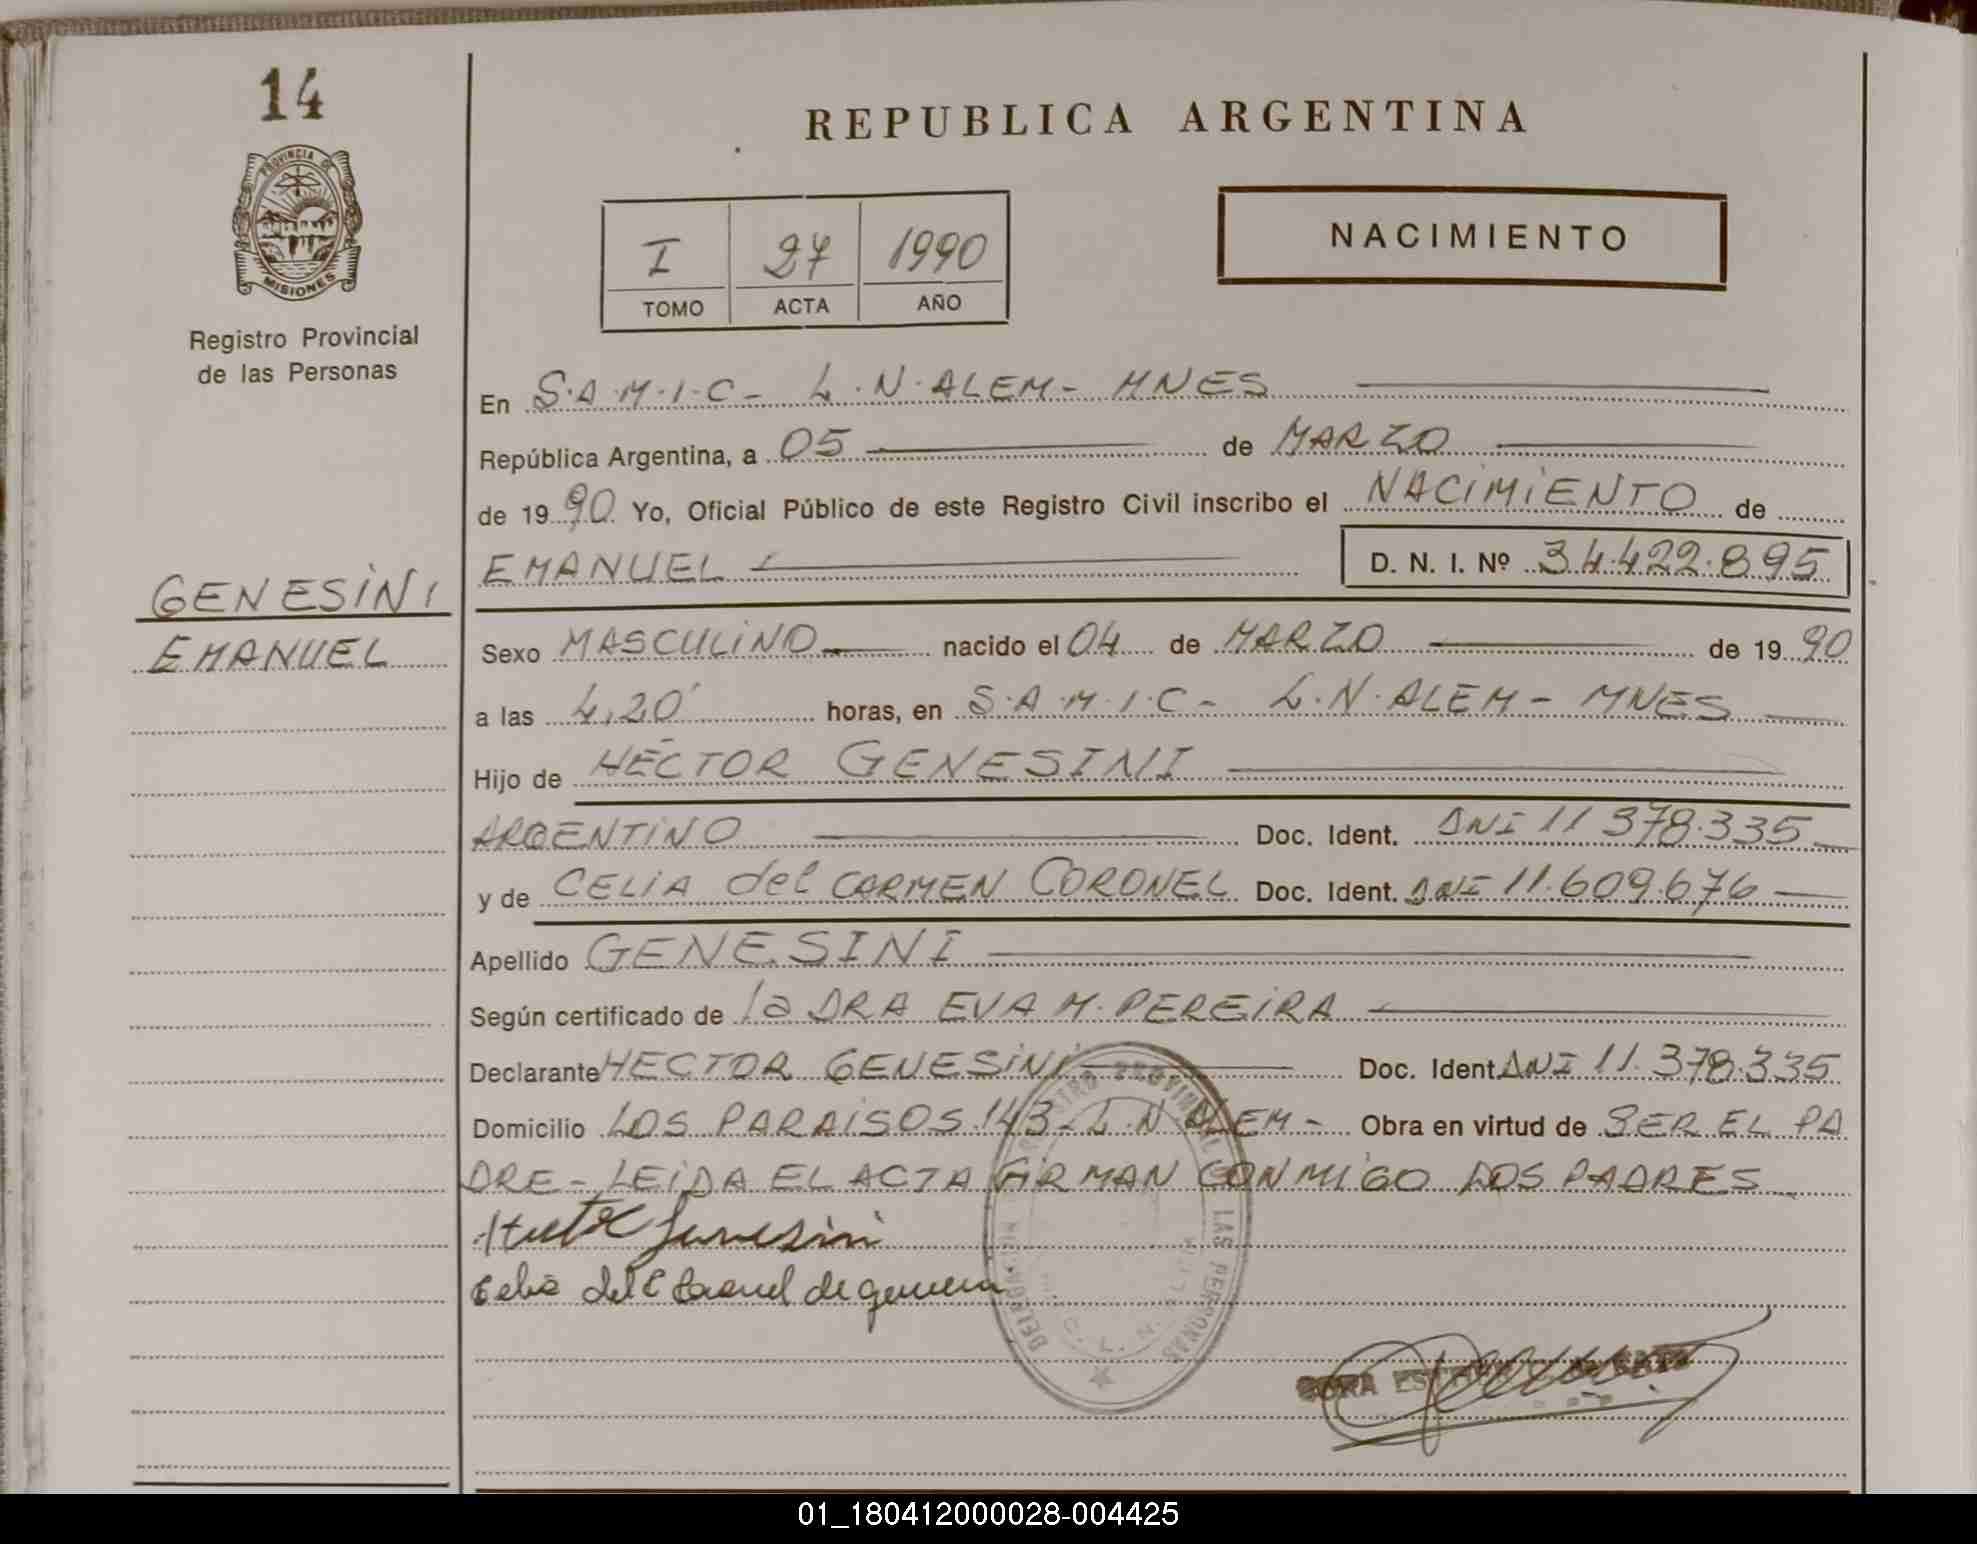 14
PROVINCIA DE
MISIONES
Registro Provincial
de las Personas
GENESINI
EMANUEL
REPUBLICA ARGENTINA
I 27 1990
TOMO ACTA AÑO
NACIMIENTO
En S.A.M.I.C- L.N.ALEM- MNES
República Argentina, a 05 de MARZO
de 1990 Yo, Oficial Público de este Registro Civil inscribo el NACIMIENTO de
EMANUEL D. N. I. Nº 34.422.895
Sexo MASCULINO nacido el 04 de MARZO de 1990
a las 4,20 horas, en S.A.M.I.C- L.N.ALEM- MNES
Hijo de HÉCTOR GENESINI
ARGENTINO Doc. Ident. DNI 11 378.335
y de CELIA del CARMEN CORONEL Doc. Ident. DNI 11.609.676
Apellido GENESINI
Según certificado de la DRA EVA M. PEREIRA
Declarante HECTOR GENESINI Doc. Ident. DNI 11.378.335
Domicilio LOS PARAISOS 143- L.N ALEM- Obra en virtud de SER EL PA
DRE- LEIDA EL ACTA FIRMAN CONMIGO LOS PADRES
Hector Genesini
Celia del C Coronel de
LAS PERSONAS
01_180412000028-004425